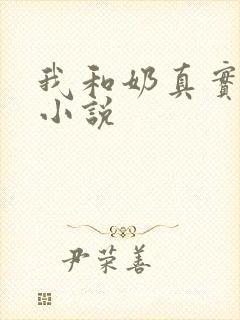 我和奶真實
小說
尹荣善